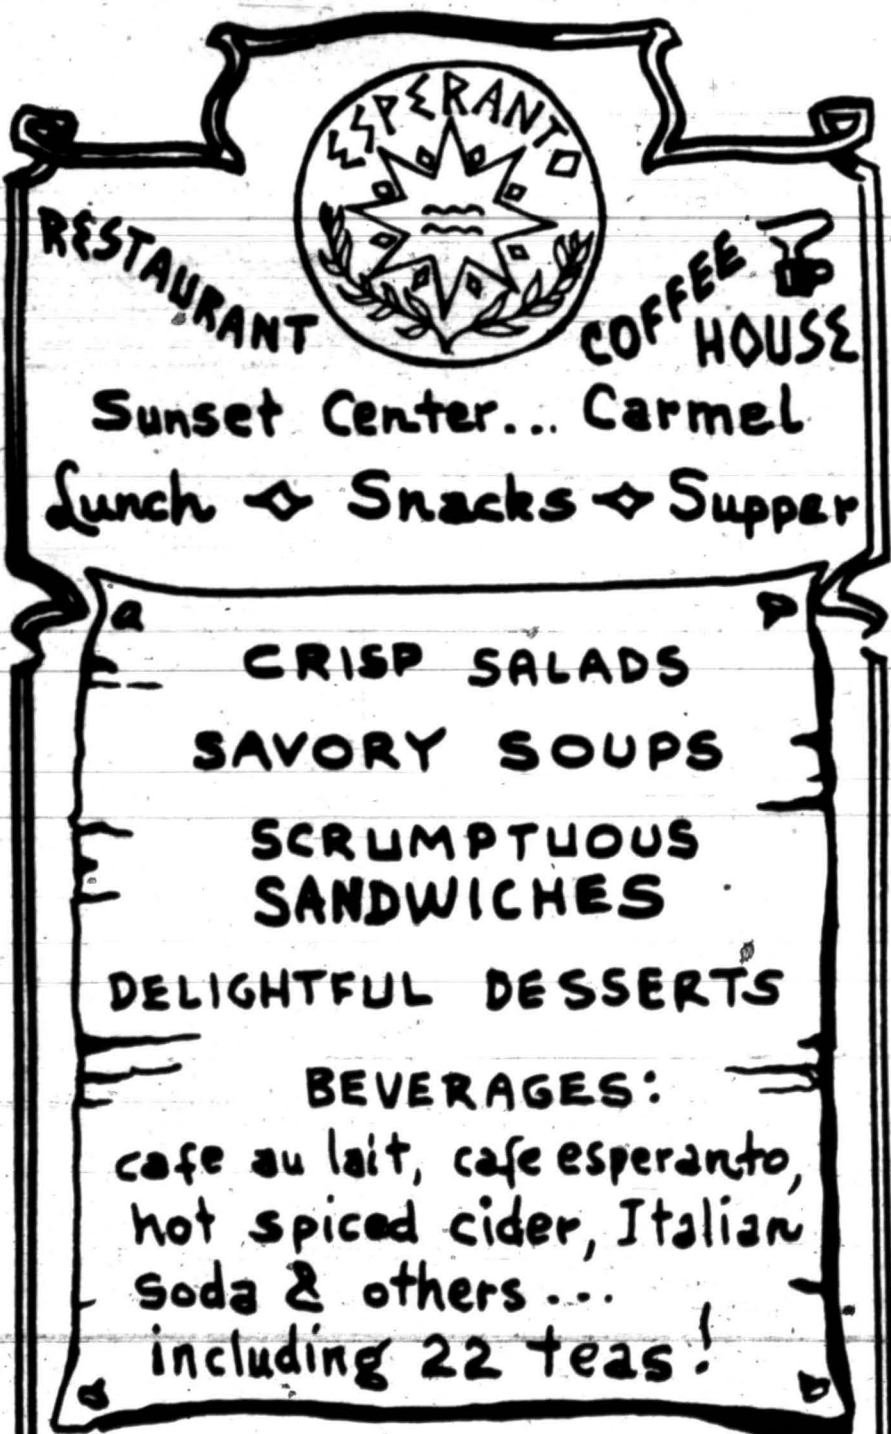 ESPERANTO
RESTAURANT
COFFEE
HOUSE
Sunset Center... Carmel
Lunch Snacks Supper
CRISP SALADS
SAVORY SOUPS
SCRUMPTUOUS
SANDWICHES
DELIGHTFUL DESSERTS
BEVERAGES:
cafe au lait, cafe esperanto,
hot spiced cider, Italian
soda & others...
including 22 teas!